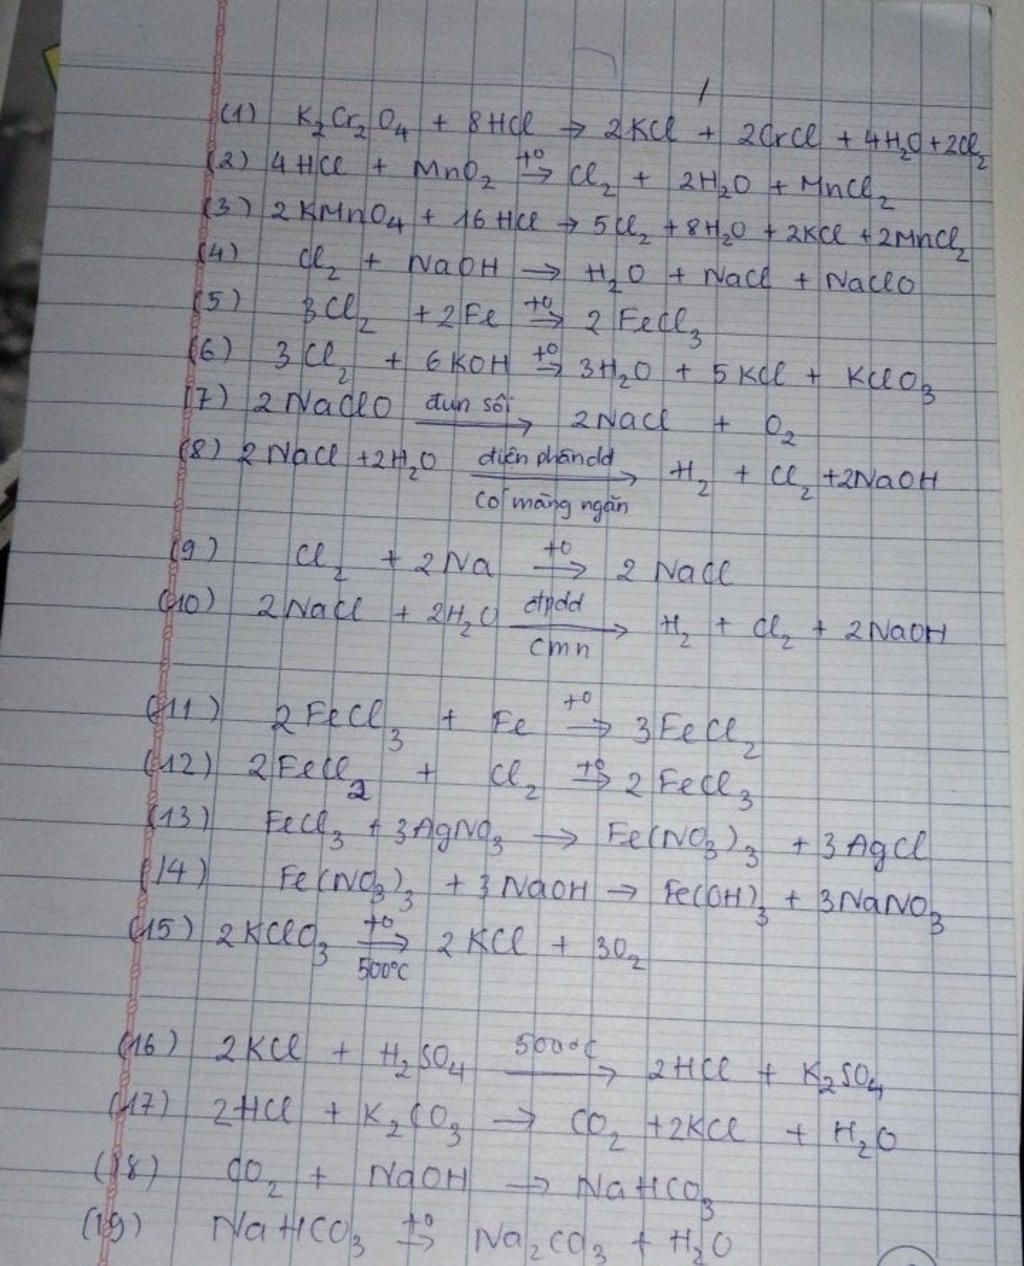 (1) K₂Cr₂O₄ + 8HCl → 2KCl + 2CrCl + 4H₂O + 2Cl₂
(2) 4HCl + MnO₂ →(t⁰) Cl₂ + 2H₂O + MnCl₂
(3) 2KMnO₄ + 16HCl → 5Cl₂ + 8H₂O + 2KCl + 2MnCl₂
(4) Cl₂ + NaOH → H₂O + NaCl + NaClO
(5) 3Cl₂ + 2Fe →(t⁰) 2FeCl₃
(6) 3Cl₂ + 6KOH →(t⁰) 3H₂O + 5KCl + KClO₃
(7) 2NaClO →(đun sôi) 2NaCl + O₂
(8) 2NaCl + 2H₂O →(điện phân dd / có màng ngăn) H₂ + Cl₂ + 2NaOH
(9) Cl₂ + 2Na →(t⁰) 2NaCl
(10) 2NaCl + 2H₂O →(đpdd / cmn) H₂ + Cl₂ + 2NaOH
(11) 2FeCl₃ + Fe →(t⁰) 3FeCl₂
(12) 2FeCl₂ + Cl₂ →(t⁰) 2FeCl₃
(13) FeCl₃ + 3AgNO₃ → Fe(NO₃)₃ + 3AgCl
(14) Fe(NO₃)₃ + 3NaOH → Fe(OH)₃ + 3NaNO₃
(15) 2KClO₃ →(t⁰ / 500°C) 2KCl + 3O₂
(16) 2KCl + H₂SO₄ →(500°C) 2HCl + K₂SO₄
(17) 2HCl + K₂CO₃ → CO₂ + 2KCl + H₂O
(18) CO₂ + NaOH → NaHCO₃
(19) NaHCO₃ →(t⁰) Na₂CO₃ + H₂O